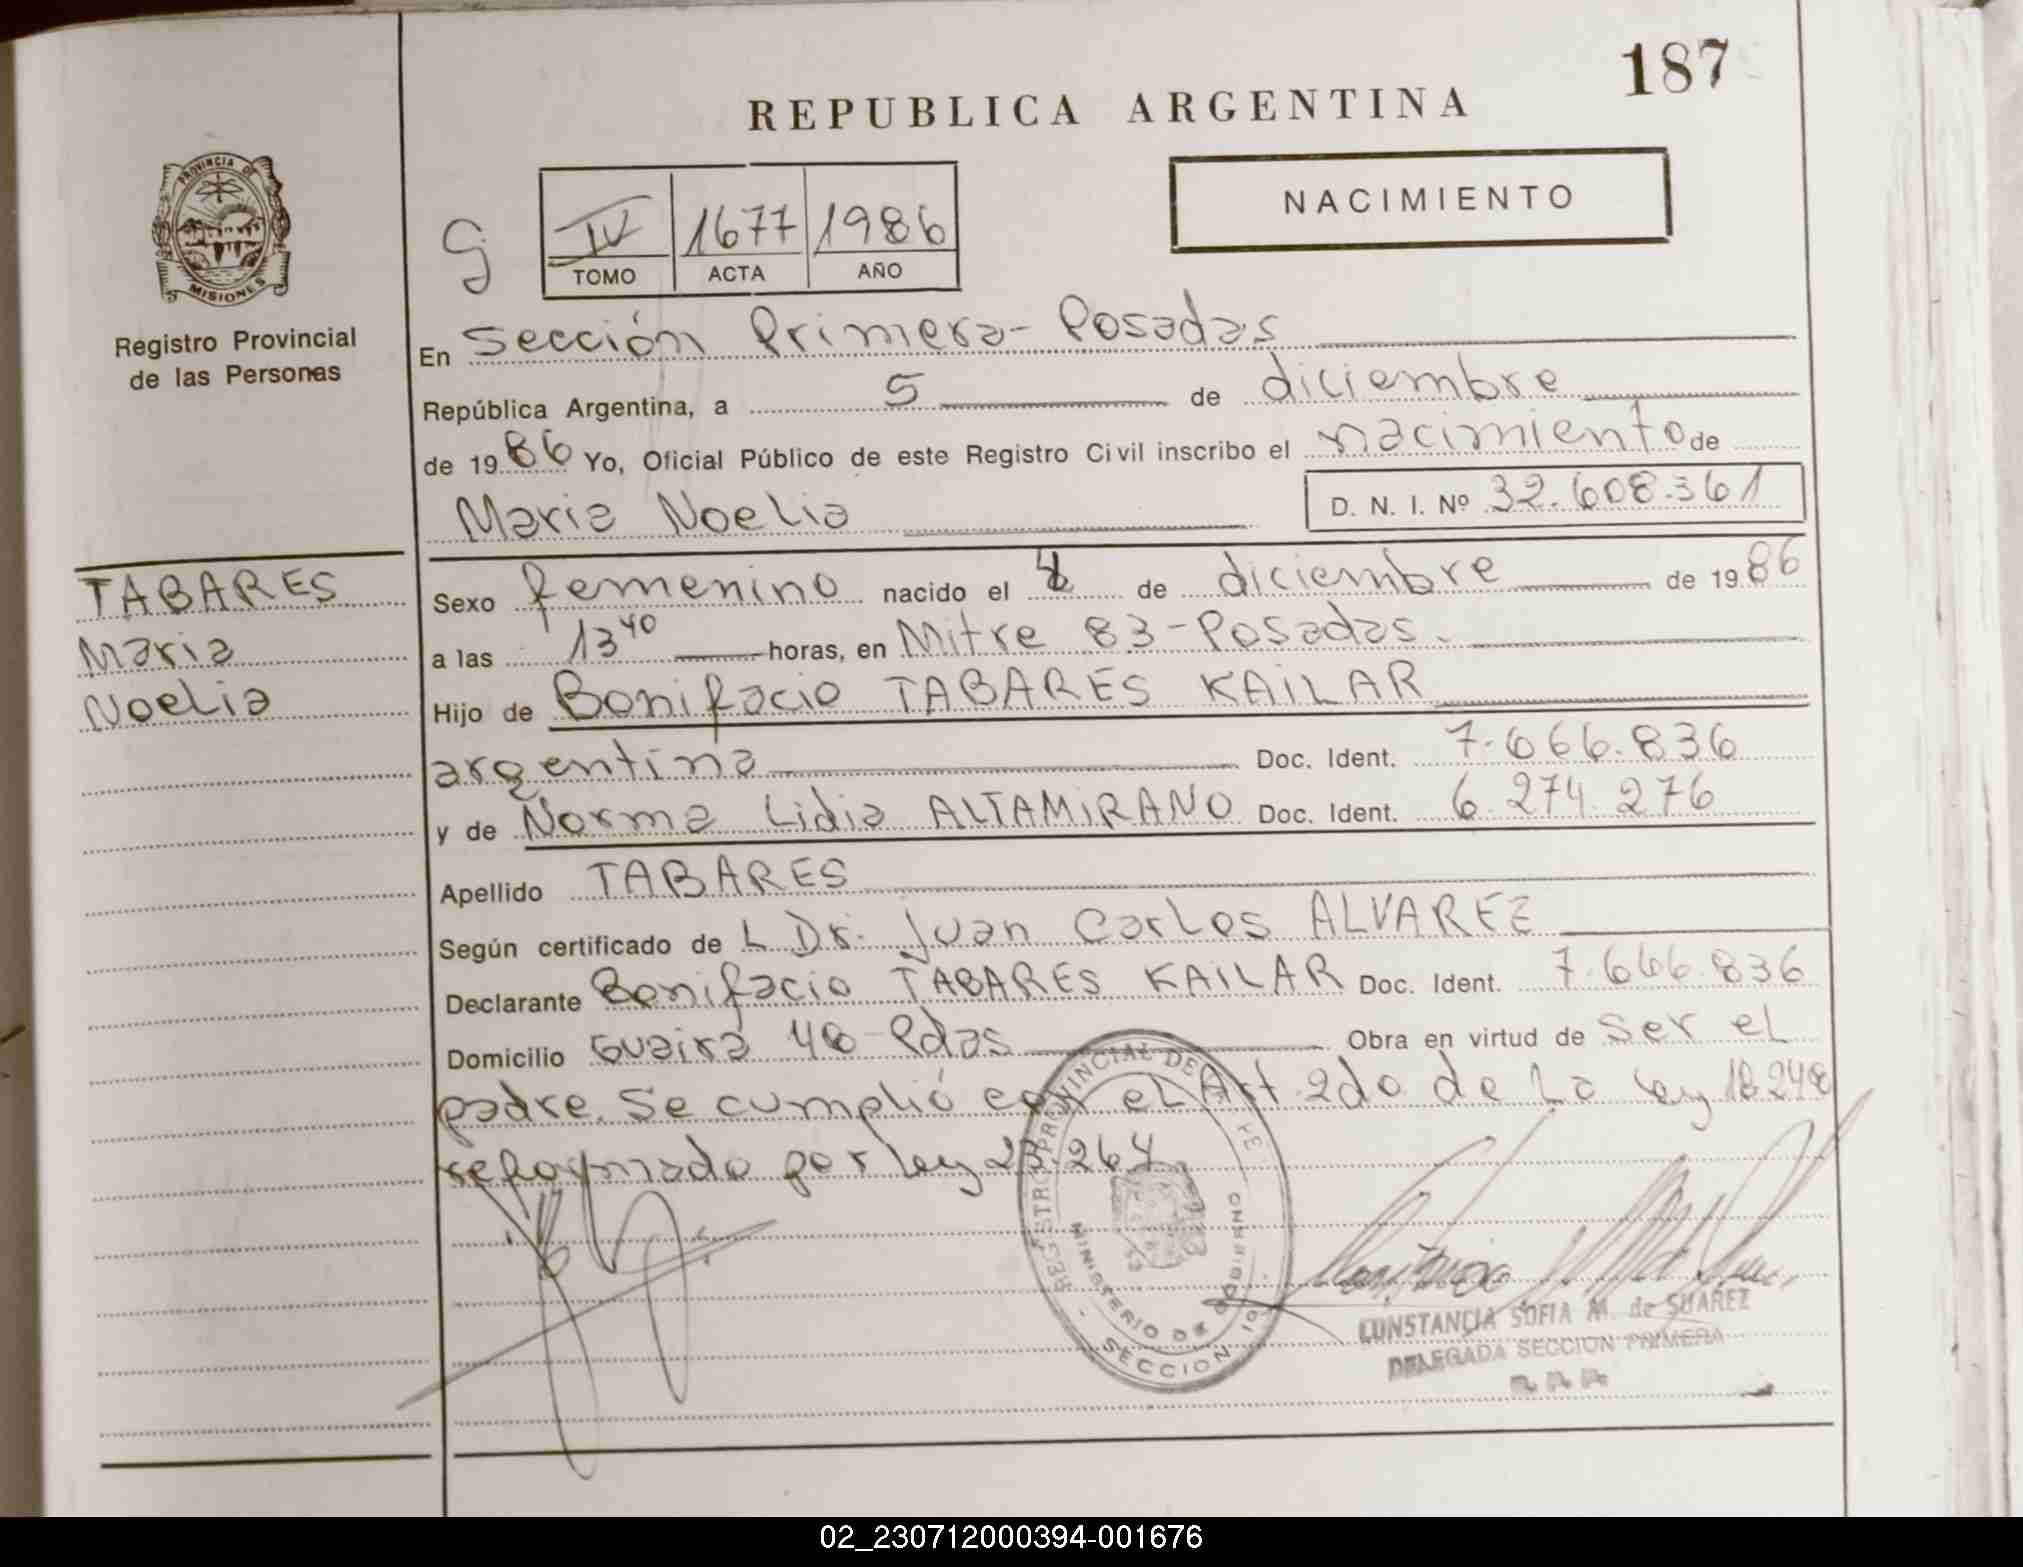 187
REPUBLICA ARGENTINA
NACIMIENTO
PROVINCIA DE
MISIONES
Registro Provincial
de las Personas
IV 1677 1986
TOMO ACTA AÑO
En Sección Primera - Posadas
República Argentina, a 5 de diciembre
de 1986 Yo, Oficial Público de este Registro Civil inscribo el nacimiento de
Maria Noelia D. N. I. Nº 32.608.361
TABARES
Maria
Noelia
Sexo femenino nacido el de diciembre de 1986
a las 13 40 horas, en Mitre 83 - Posadas.
Hijo de Bonifacio TABARES KAILAR
argentina Doc. Ident. 7.666.836
y de Norma Lidia ALTAMIRANO Doc. Ident. 6.274.276
Apellido TABARES
Según certificado de L Dr. Juan Carlos ALVAREZ
Declarante Bonifacio TABARES KAILAR Doc. Ident. 7.666.836
Domicilio Guaira 48 Pdas Obra en virtud de ser el
padre. Se cumplió con el Art 2do de La Ley 18248
reformado por ley 23.264
REGISTRO PROVINCIAL DE
MINISTERIO DE GOBIERNO
SECCION 1o.
CONSTANCIA SOFIA M. de SUAREZ
DELEGADA SECCION PRIMERA
02_230712000394-001676